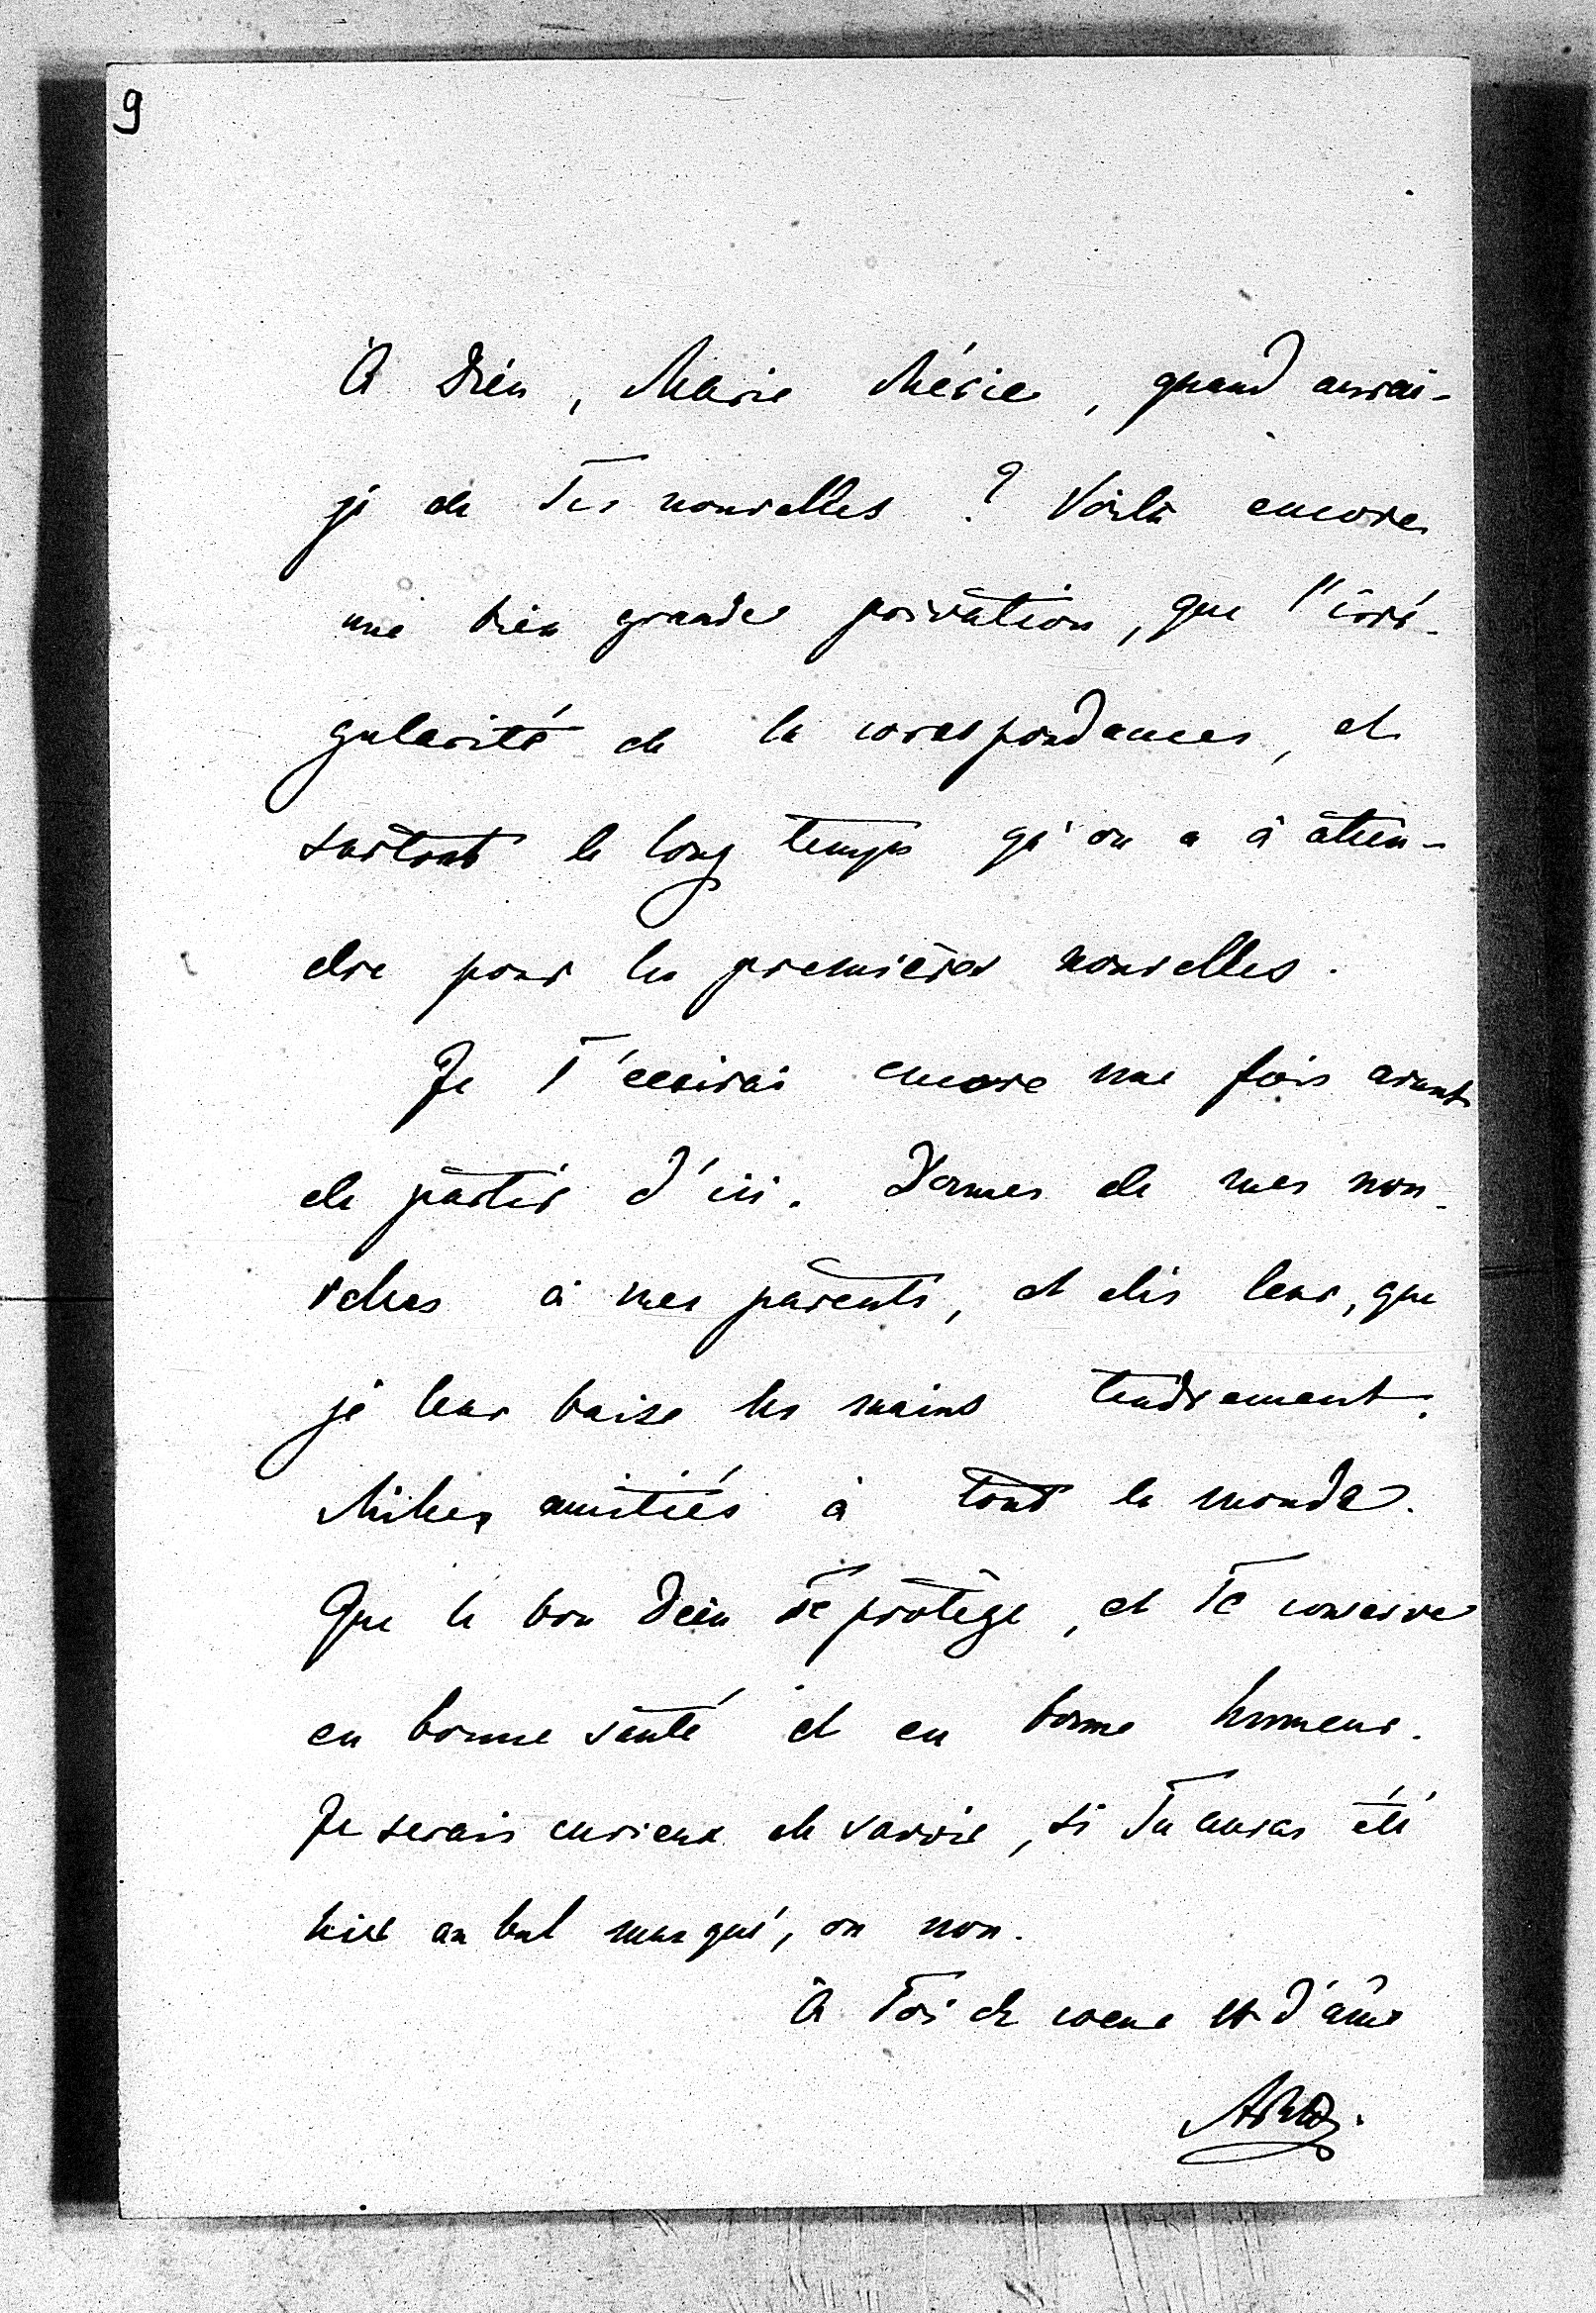 9
À Dieu, Marie chérie, quand aurai-
je de Tes nouvelles ? Voila encore
une bien grande privation, que l'irré-
gularité de la corespondance, et
surtout le long temps qu'on a à atten-
dre pour les premières nouvelles.
Je T'écrirai encore une fois avant
de partir d'ici. Donnes de mes nou-
velles à mes parents, et dis leur, que
je leur baise les mains tendrement.
Milles amitiés à tout le monde.
Que le bon Dieu Te protège, et Te conserve
en bonne santé et en bonne humeur.
Je serais curieux de savoir, si Tu auras été
hier au bal masqué, ou non.
À Toi de coeur et d'âme